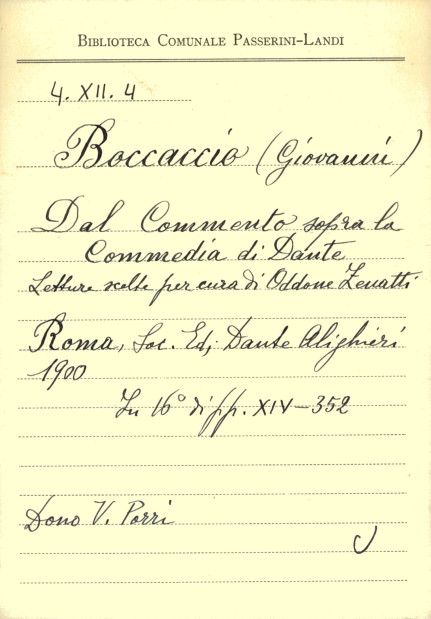 BIBLIOTECA COMUNALE PASSERINI-LANDI
4. XII. 4
Boccaccio (Giovanni)
Dal Commento sopra la
Commedia di Dante
Letture scelte per cura di Oddone Zenatti
Roma, Soc. Ed. Dante Alighieri
1900
In 16° di pp. XIV-352
Dono V. Porri